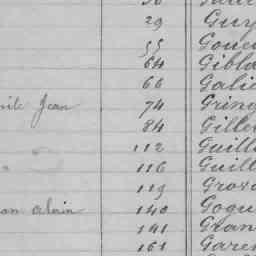 29 Guy
55 Goue
64 Gibla
66 Galie
Jean 74 Gring
84 Gille
112 Guill
116 Guill
119 Groz
Alain 140 Gogu
141 Gran
161 Garen